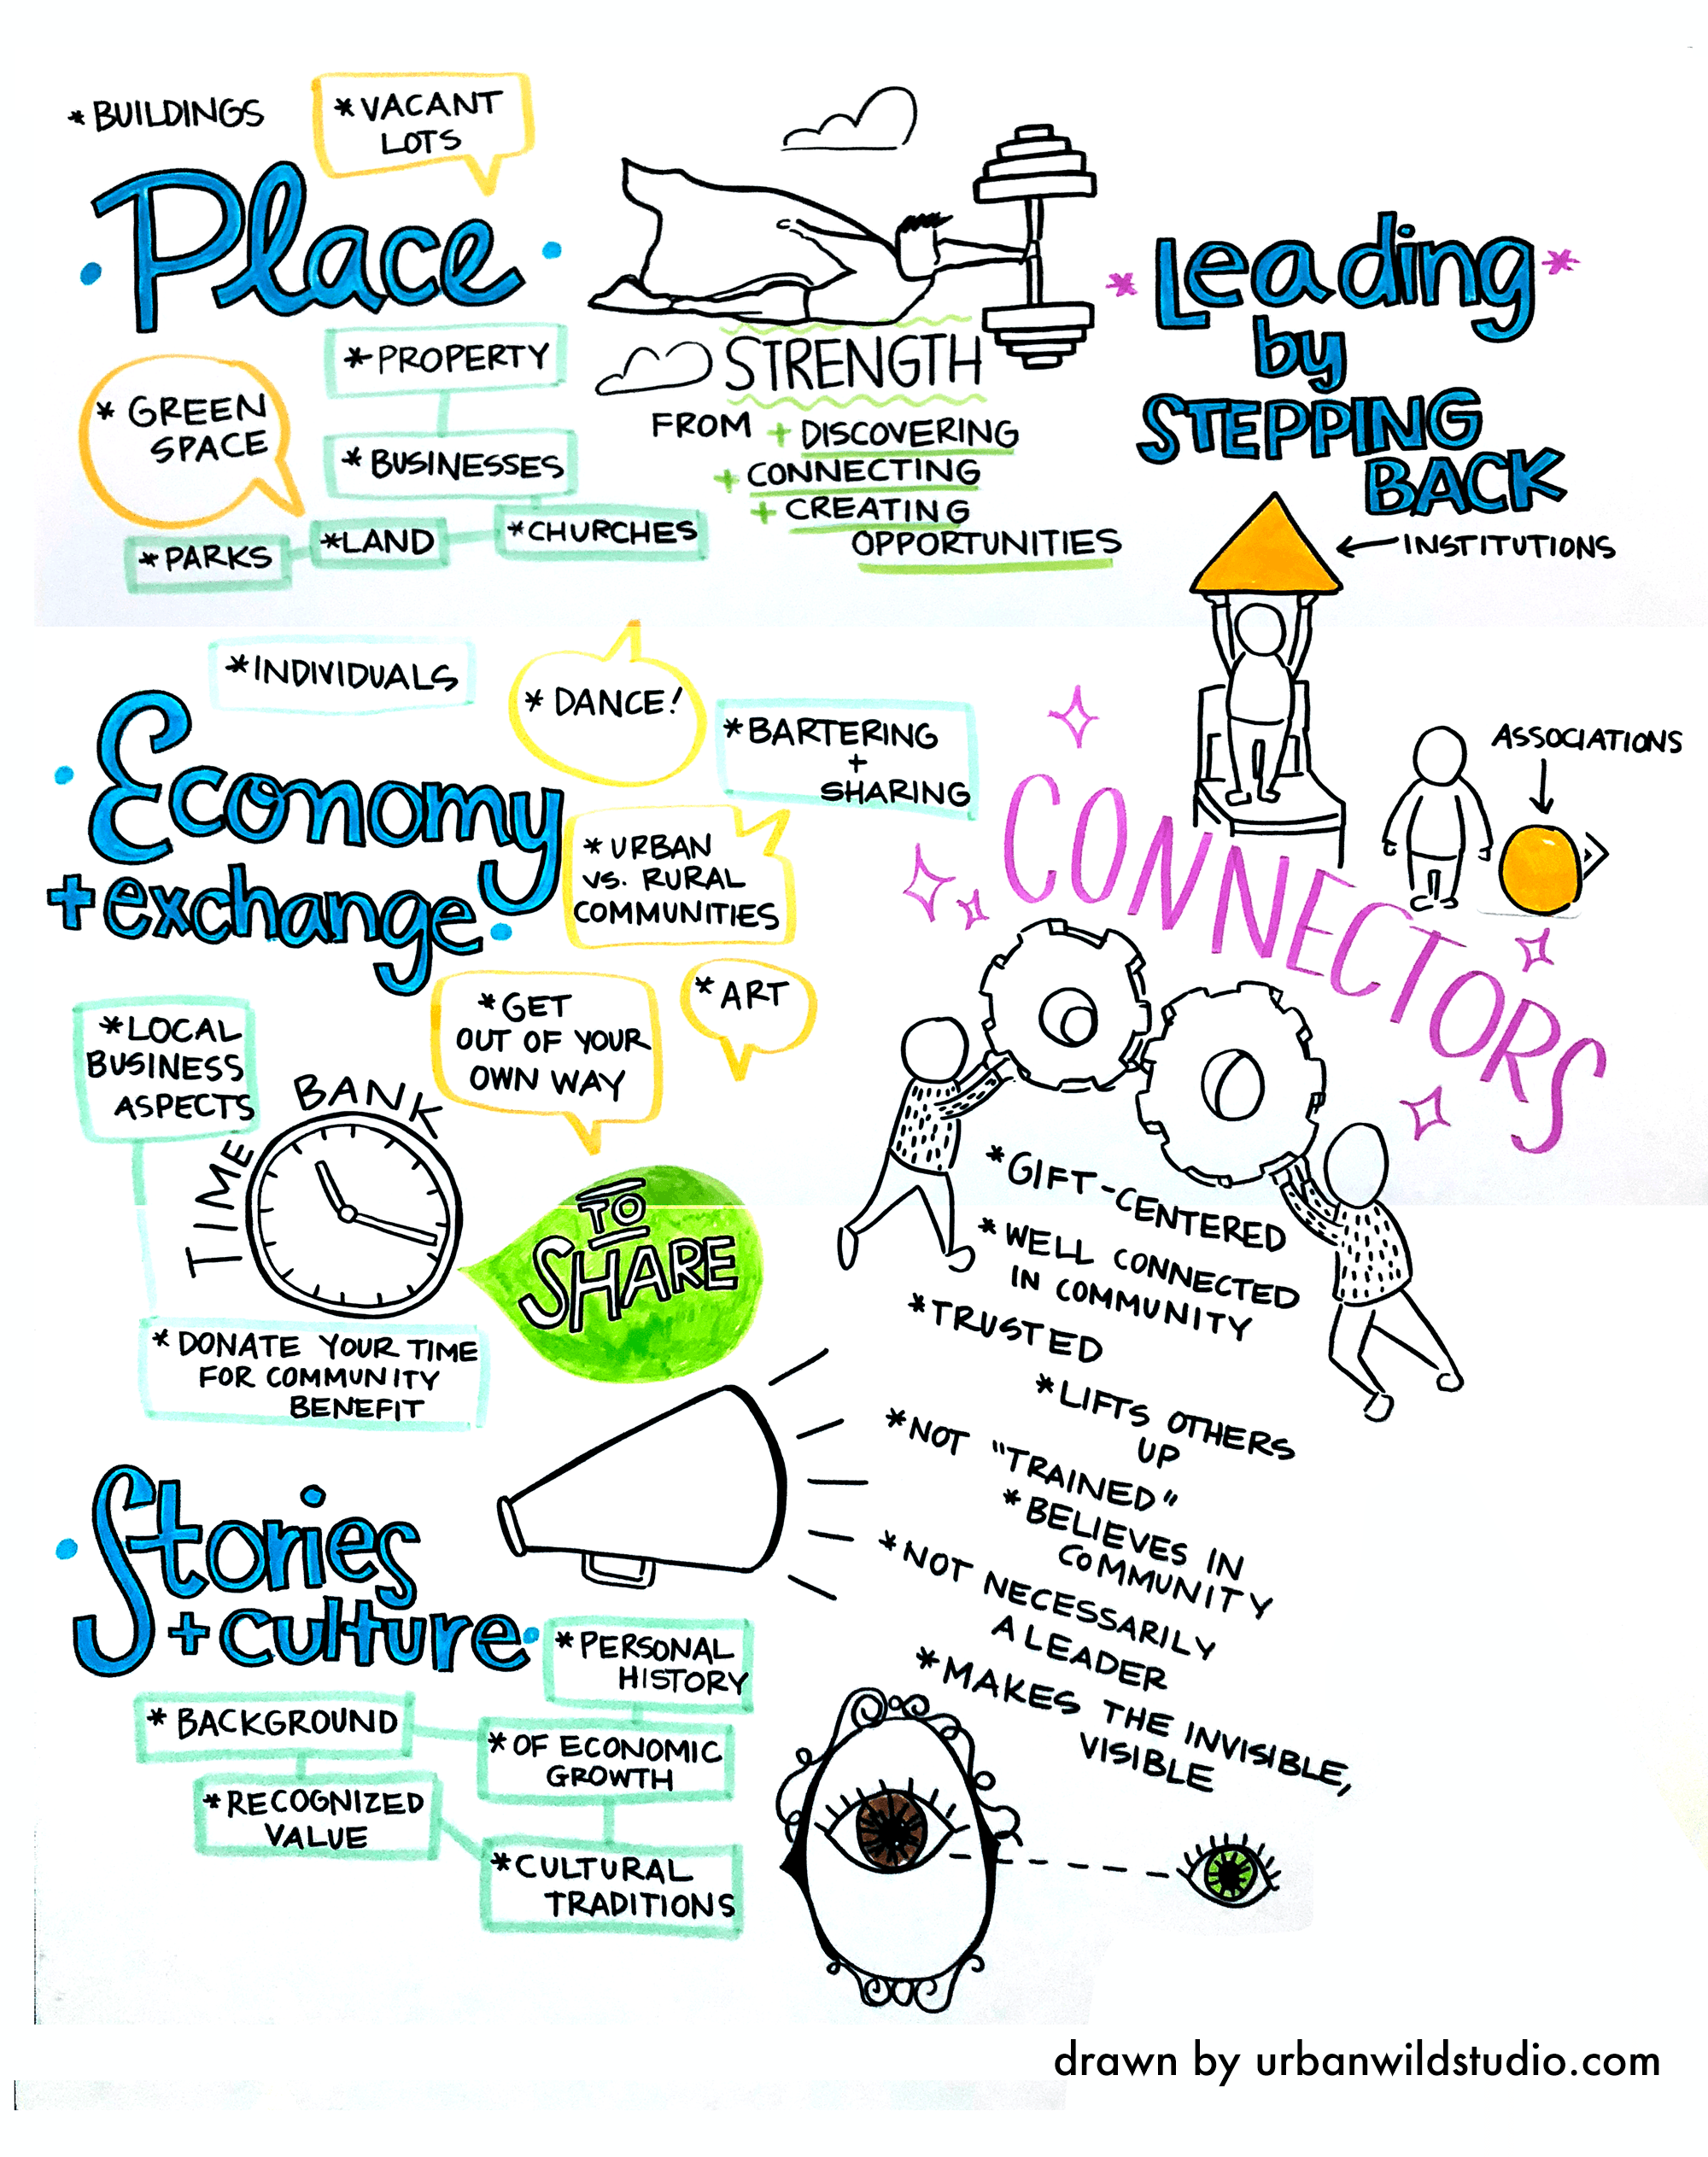 *BUILDINGS
*VACANT
LOTS
Place
*PROPERTY
*GREEN
SPACE
*BUSINESSES
*CHURCHES
*LAND
*PARKS
STRENGTH
FROM + DISCOVERING
+ CONNECTING
+ CREATING
OPPORTUNITIES
*Leading*
by
STEPPING
BACK
INSTITUTIONS
ASSOCIATIONS
*INDIVIDUALS
*DANCE!
*BARTERING
+
SHARING
Economy
+exchange
*URBAN
VS. RURAL
COMMUNITIES
*GET
OUT OF YOUR
OWN WAY
*ART
*LOCAL
BUSINESS
ASPECTS
TIME BANK
TO
SHARE
*DONATE YOUR TIME
FOR COMMUNITY
BENEFIT
CONNECTORS
*GIFT-CENTERED
*WELL CONNECTED
IN COMMUNITY
*TRUSTED
*LIFTS OTHERS
UP
*NOT "TRAINED"
*BELIEVES IN
COMMUNITY
*NOT NECESSARILY
A LEADER
*MAKES THE INVISIBLE,
VISIBLE
Stories
+culture
*PERSONAL
HISTORY
*BACKGROUND
*OF ECONOMIC
GROWTH
*RECOGNIZED
VALUE
*CULTURAL
TRADITIONS
drawn by urbanwildstudio.com